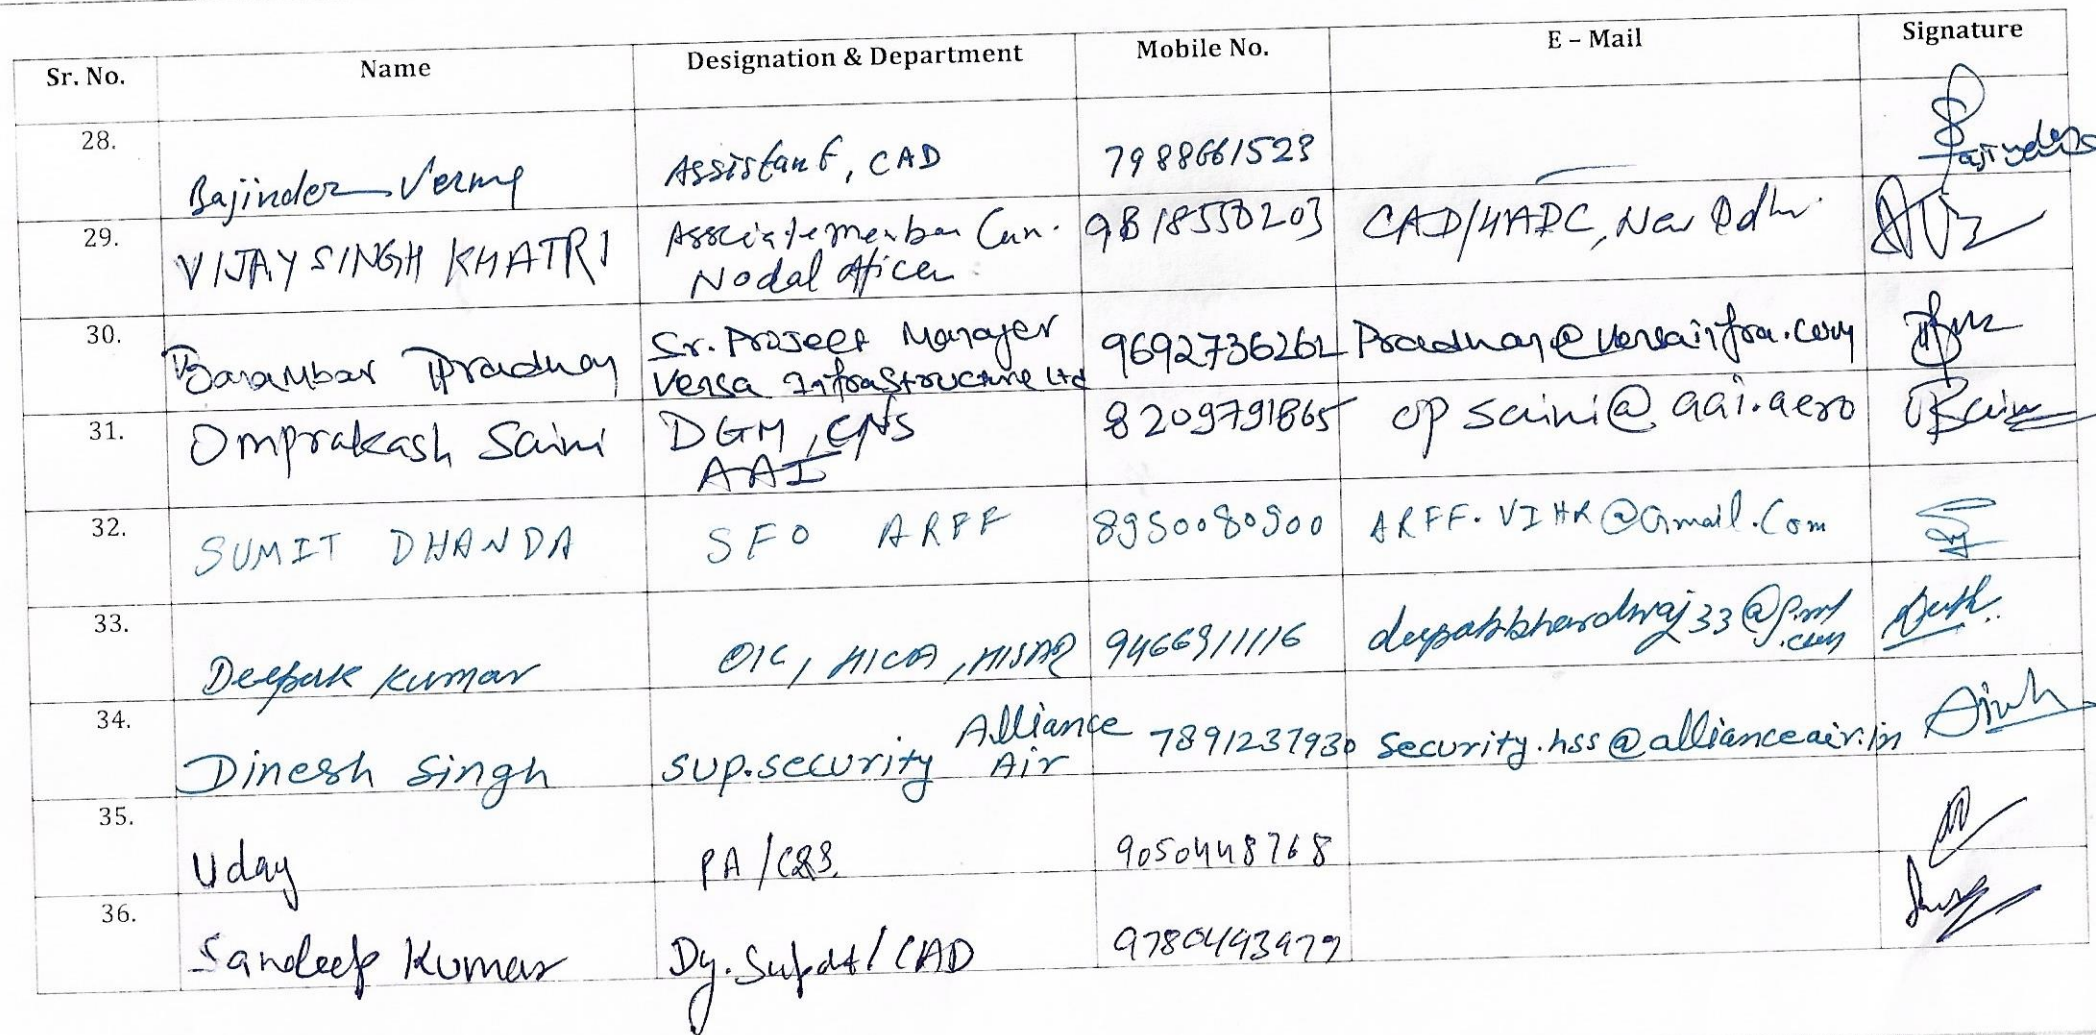 Sr. No. Name Designation & Department Mobile No. E – Mail Signature
28. Bajinder Verma Assistant, CAD 7988661523 —
29. VIJAY SINGH KHATRI Associate member Cum. 9818558203 CAD/HADC, New Delhi.
Nodal officer
30. Barambar Pradhan Sr. Project Manager 9692736262 Pradhan@versainfra.com
Versa Infrastructure Ltd
31. Omprakash Saini DGM, CNS 8209791865 opsaini@aai.aero
AAI
32. SUMIT DHANDA SFO ARFF 8950080900 ARFF.VIHR@Gmail.Com
33. Deepak Kumar OIC, HICA, HISAR 9466911116 deepakbhardwaj33@gmail
.com
34. Dinesh Singh Sup.security Alliance 7891237930 security.hss@allianceair.in
Air
35. Uday PA / 9050448768
36. Sandeep Kumar Dy. Supdt / CAD 9780493979